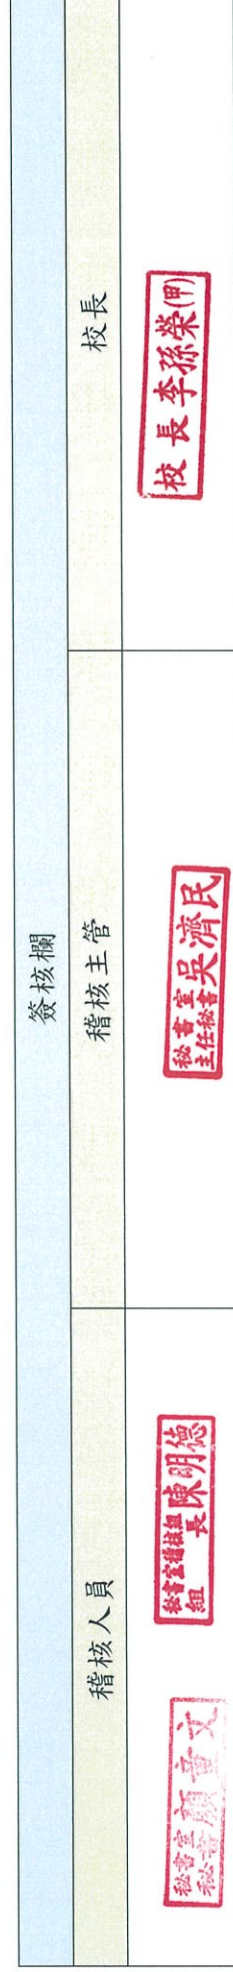 簽核欄
稽核人員
稽核主管
校長
秘書室
秘書
文
秘書室稽核組
組長陳明德
秘書室
主任秘書吳濟民
校長李孫榮(甲)